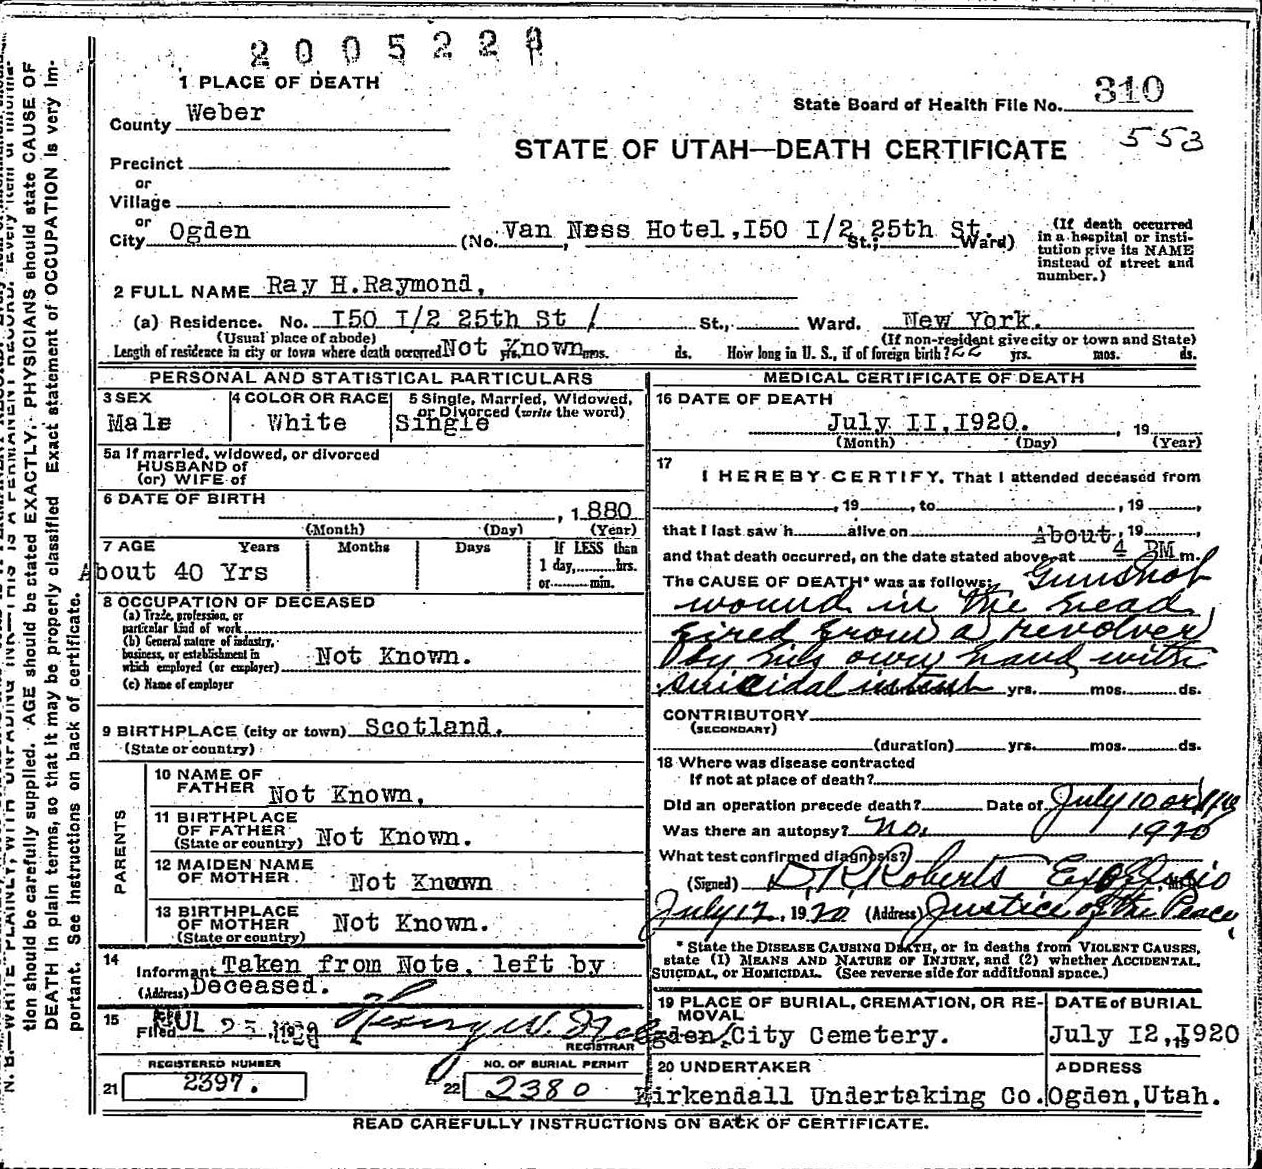 2 0 0 5 2 2 8
1 PLACE OF DEATH
County Weber
State Board of Health File No. 310
553
STATE OF UTAH—DEATH CERTIFICATE
Precinct
or
Village
or
City Ogden (No. Van Ness Hotel, I50 I/2 25th St. St.; Ward)
(If death occurred in a hospital or insti-
tution give its NAME
instead of street and
number.)
2 FULL NAME Ray H.Raymond,
(a) Residence. No. I50 I/2 25th St / St., Ward. New York.
(Usual place of abode) (If non-resident give city or town and State)
Length of residence in city or town where death occurred Not Known yrs. mos. ds. How long in U. S., if of foreign birth? 22 yrs. mos. ds.
PERSONAL AND STATISTICAL PARTICULARS
3 SEX Male
4 COLOR OR RACE White
5 Single, Married, Widowed,
or Divorced (write the word)
Single
5a If married, widowed, or divorced
HUSBAND of
(or) WIFE of
6 DATE OF BIRTH , 1880
(Month) (Day) (Year)
7 AGE Years Months Days If LESS than
1 day, hrs.
or min.
About 40 Yrs
8 OCCUPATION OF DECEASED
(a) Trade, profession, or
particular kind of work
(b) General nature of industry,
business, or establishment in
which employed (or employer) Not Known.
(c) Name of employer
9 BIRTHPLACE (city or town) Scotland.
(State or country)
PARENTS
10 NAME OF
FATHER Not Known,
11 BIRTHPLACE
OF FATHER
(State or country) Not Known.
12 MAIDEN NAME
OF MOTHER Not Known
13 BIRTHPLACE
OF MOTHER
(State or country) Not Known.
14 Informant Taken from Note, left by
(Address) Deceased.
15 Filed JUL 23 1920 Henry W.
REGISTRAR
REGISTERED NUMBER
21 2397.
NO. OF BURIAL PERMIT
22 2380
MEDICAL CERTIFICATE OF DEATH
16 DATE OF DEATH
July II, I920. , 19
(Month) (Day) (Year)
17 I HEREBY CERTIFY, That I attended deceased from
, 19 , to , 19 ,
that I last saw h alive on About , 19 ,
and that death occurred, on the date stated above, at 4 PM m.
The CAUSE OF DEATH* was as follows: Gunshot
wound in the head
fired from a revolver
by his own hand with
suicidal intent yrs. mos. ds.
CONTRIBUTORY
(SECONDARY)
(duration) yrs. mos. ds.
18 Where was disease contracted
If not at place of death?
Did an operation precede death? Date of July 10 or 11/20
Was there an autopsy? no. 1920
What test confirmed diagnosis?
(Signed) D R Roberts Ex Officio
July 12, 1920 (Address) Justice of the Peace
* State the DISEASE CAUSING DEATH, or in deaths from VIOLENT CAUSES,
state (1) MEANS AND NATURE OF INJURY, and (2) whether ACCIDENTAL,
SUICIDAL, or HOMICIDAL. (See reverse side for additional space.)
19 PLACE OF BURIAL, CREMATION, OR RE-
MOVAL
Ogden City Cemetery.
DATE of BURIAL
July I2, 19 I920
20 UNDERTAKER
Kirkendall Undertaking Co.
ADDRESS
Ogden, Utah.
READ CAREFULLY INSTRUCTIONS ON BACK OF CERTIFICATE.
N. B.—WRITE PLAINLY, WITH UNFADING INK—THIS IS A PERMANENT RECORD. Every item of informa-
tion should be carefully supplied. AGE should be stated EXACTLY. PHYSICIANS should state CAUSE OF
DEATH in plain terms, so that it may be properly classified. Exact statement of OCCUPATION is very im-
portant. See instructions on back of certificate.